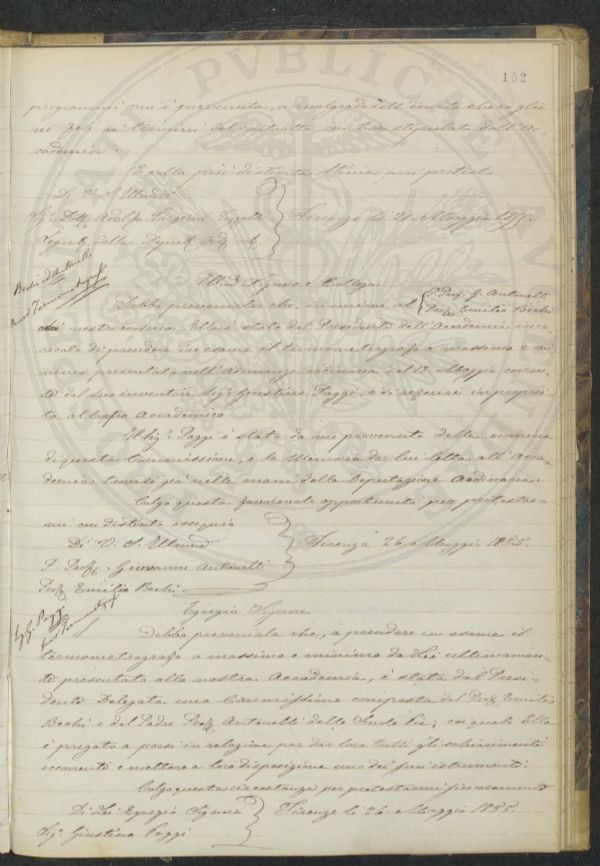 102
programmi era pervenuta, a malgrado dell'invito che
ne però ai termini del contratto stipulato dall'Ac-
cademia.
E colla più distinta stima, mi protesto
Di V. S. Illma
Sig. Dott. Adolfo Targioni Tozzetti
Segret. della Deput. Ord.
Firenze li Maggio 1855.
Bechi d'Antonelli
Termometrografo
Illmo Signore e Collega
Debbo prevenirla che, in unione al
P. Prof. G. Antonelli
Prof. Emilio Bechi
nostro consocio, Ella è stato dal Presidente dell'Accademia inca-
ricato di prendere in esame il termometrografo a massimo e mi-
nimo presentato nell'Adunanza ordinaria del 13 Maggio corren-
te dal suo inventore Sig. Giustino Paggi, e di referire in proposi-
to al Corpo Accademico.
Il Sig. Paggi è stato da me prevenuto della nomina
di questa Commissione, e la Memoria da lui letta all'Acca-
demia trovasi già nelle mani della Deputazione Ordinaria.
Colgo questa favorevole opportunità per protestar-
mi con distinto ossequio
Di V. S. Illma
P. Prof. Giovanni Antonelli
Prof. Emilio Bechi
Firenze 26 Maggio 1855.
Sig. G. Paggi
Termometrografo
Egregio Signore
Debbo prevenirla che, a prendere in esame il
termometrografo a massimo e minimo da Lei ultimamen-
te presentato alla nostra Accademia, è stata dal Presi-
dente Delegata una Commissione composta del Prof. Emilio
Bechi e del Padre Prof. Antonelli delle Scuole Pie; coi quali Ella
è pregato a porsi in relazione per dar loro tutti gli schiarimenti
occorrenti e mettere a loro disposizione uno dei suoi istrumenti.
Colgo questa circostanza per protestarmi sinceramente
Di Lei Egregio Signore
Sig. Giustino Paggi
Firenze li 26 Maggio 1855.